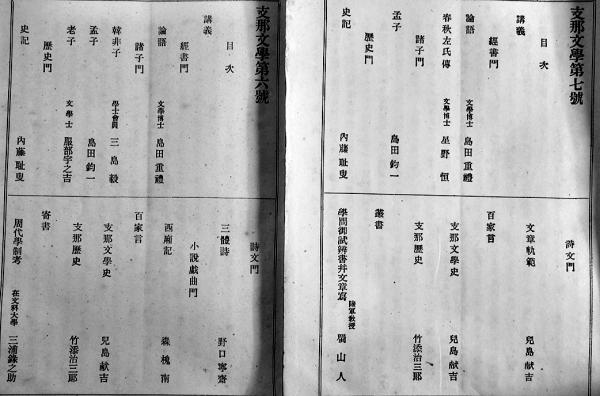 支那文學第七號
目次
講義
經書門
論語 文學博士 島田重禮
春秋左氏傳 文學博士 星野恒
諸子門
孟子 島田鈞一
歷史門
史記 內藤耻叟
詩文門
文章軌範 兒島献吉
百家言
支那文學史 兒島献吉
支那歷史 竹添治三郎
叢書
學問御試辨書幷文章寫 陸軍敎授 山人
支那文學第六號
目次
講義
經書門
論語 文學博士 島田重禮
諸子門
韓非子 學士會員 三島毅
孟子 島田鈞一
老子 文學士 服部宇之吉
歷史門
史記 內藤耻叟
詩文門
三體詩 野口寧齋
小說戲曲門
西廂記 森槐南
百家言
支那文學史 兒島献吉
支那歷史 竹添治三郎
寄書
周代學制考 在文科大學 三浦錄之助